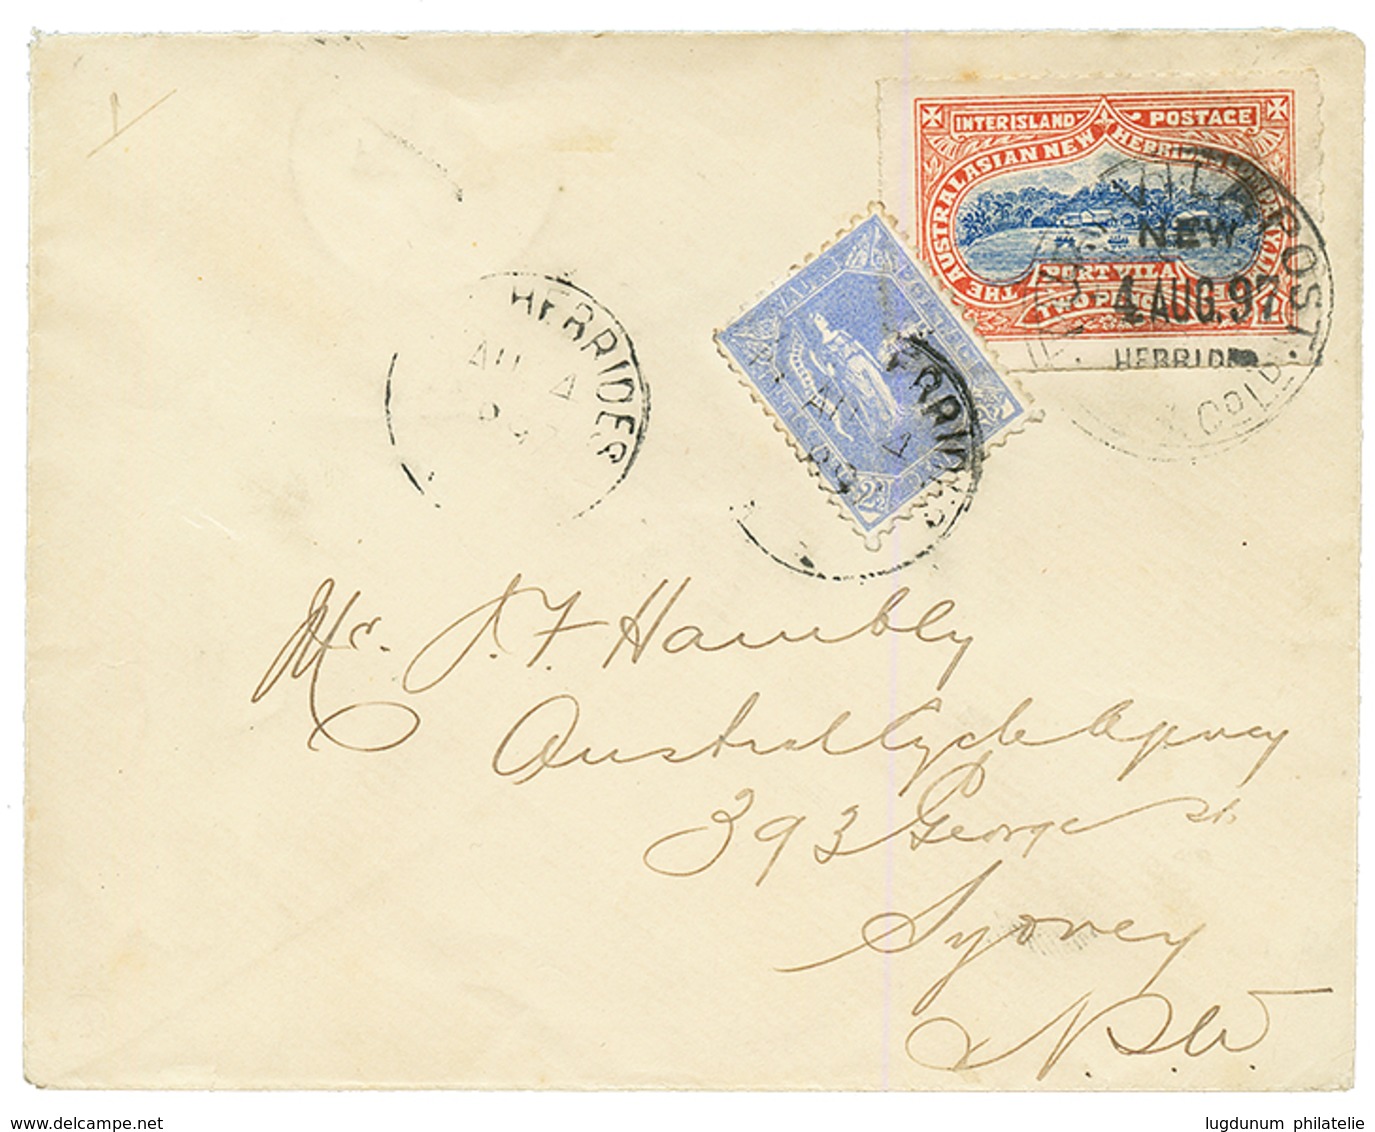 INTERISLAND POSTAGE
THE AUSTRALASIAN NEW
PORT VILA
TWO PENCE
NEW
4 AUG. 97
HEBRIDES
POST
HEBRIDES
AU 4
AU 4
2½
Mr. J. F. Hambly
Austral Cycle Agency
393 George St.
Sydney
N.S.W.
lugdunum philatelie